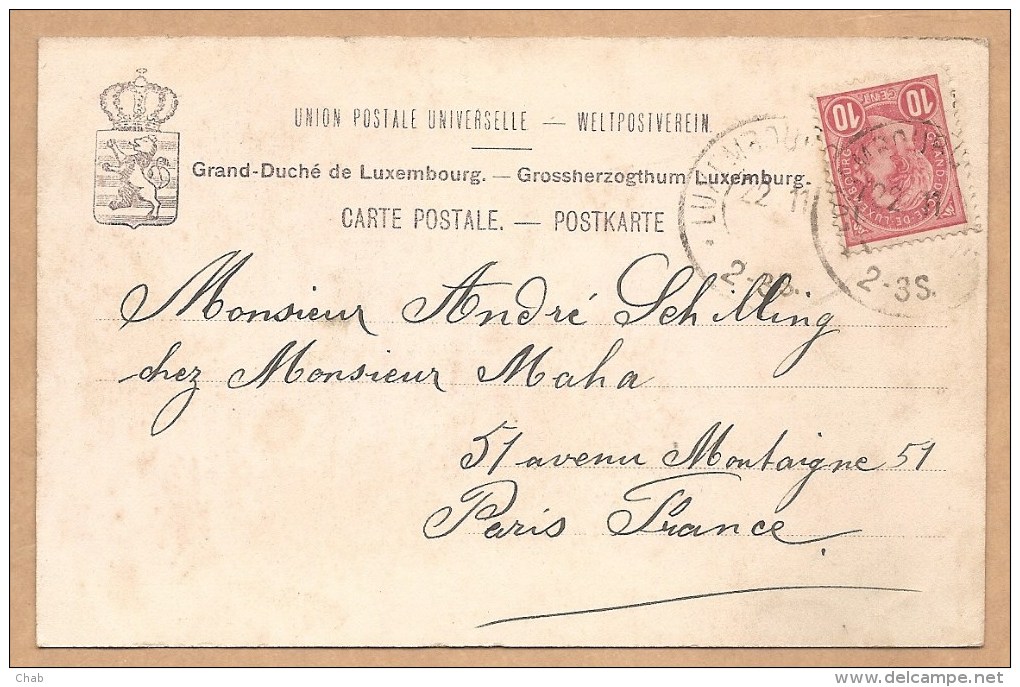 UNION POSTALE UNIVERSELLE — WELTPOSTVEREIN.
Grand-Duché de Luxembourg. — Grossherzogthum Luxemburg.
CARTE POSTALE. — POSTKARTE
10 CENT. 10
GRAND-DUCHÉ DE LUXEMBOURG
22 11
2-3S.
22 11
2-3S.
Monsieur André Schilling
chez Monsieur Maha
51 avenu Montaigne 51
Paris France.
Chab
delcampe.net